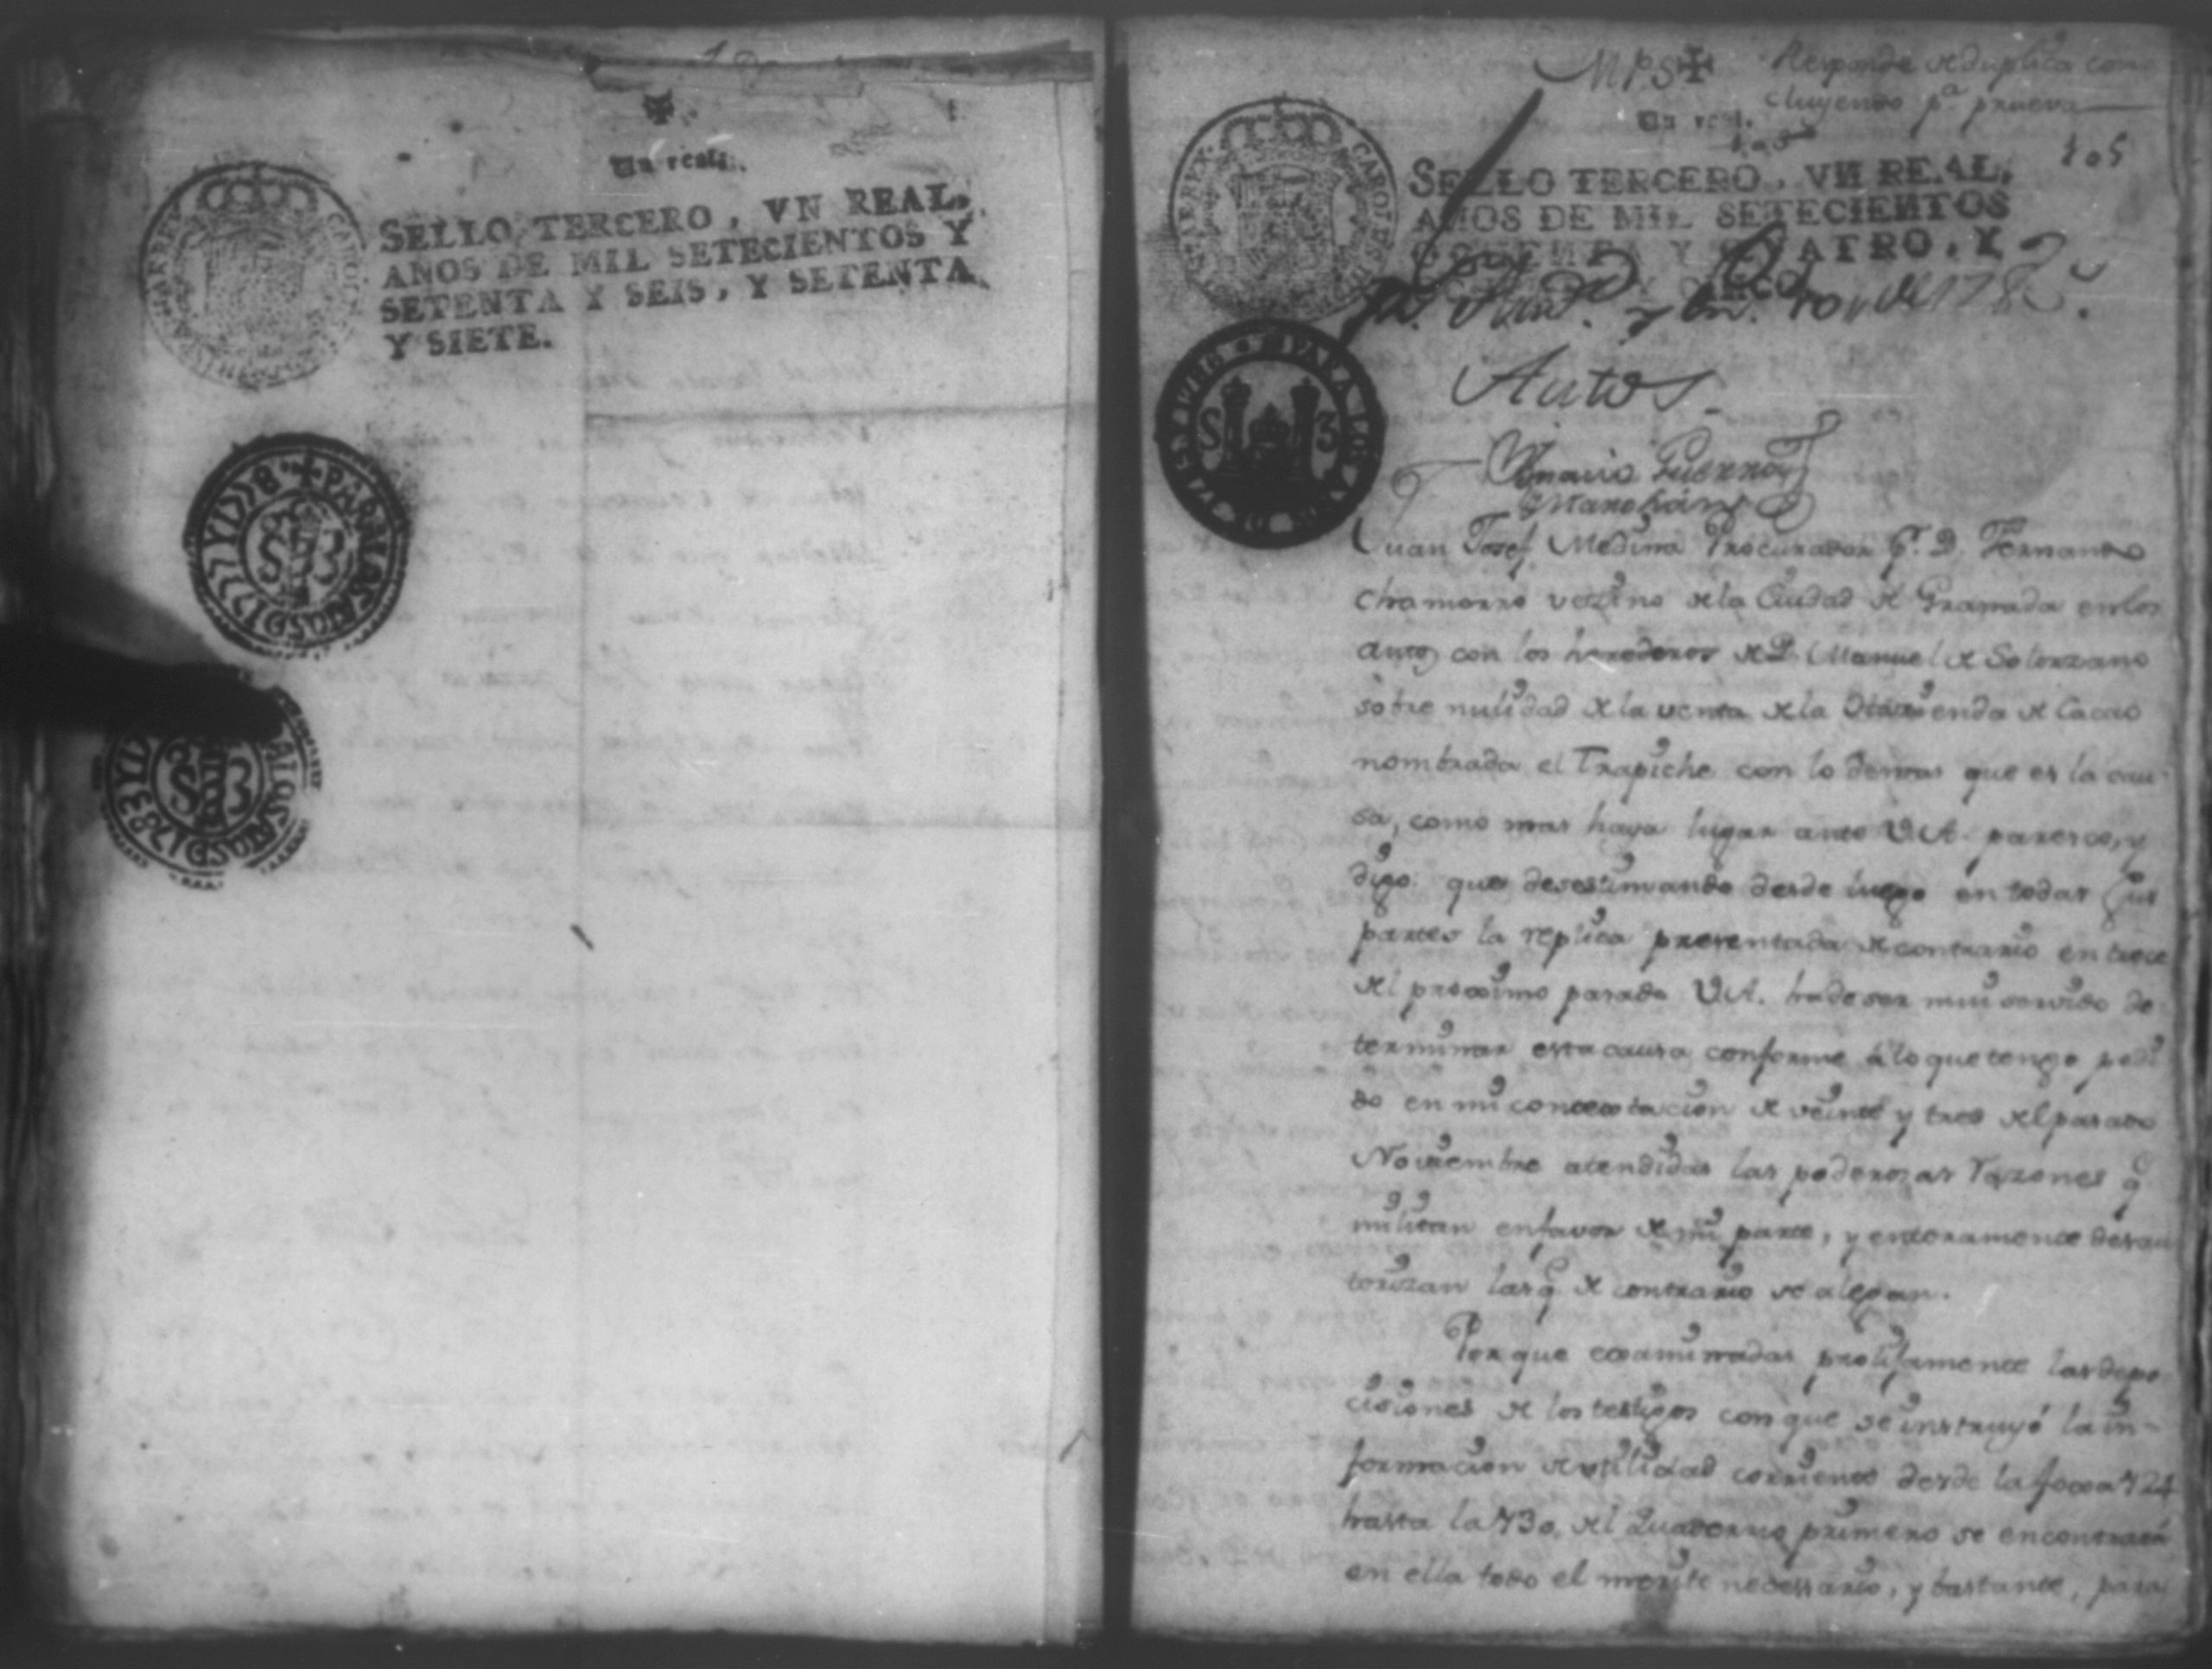 Un real.
SELLO TERCERO, VN REAL,
AÑOS DE MIL SETECIENTOS Y
SETENTA Y SEIS, Y SETENTA
Y SIETE.
PARA LOS AÑOS D 1777 Y 1778
M.P.S.
Responde a duplica con
cluyendo pa. prueva
Un real.
105
SELLO TERCERO, VN REAL,
AÑOS DE MIL SETECIENTOS
Y QUATRO, Y
PARA LOS AÑOS DE
S 3
Autos
Ygnacio Guerra y
Marchán
Juan Josef Medina Procurador pr. D. Fernando
Chamorro vezino de la Ciudad de Granada en los
autos con los herederos de Dn. Manuel de Solorzano
sobre nulidad de la venta de la Hazienda de Cacao
nombrada el Trapiche con lo demas que es la cau
sa, como mas haya lugar ante V.A. paresco, y
digo: que desestimando desde luego en todas sus
partes la replica presentada de contrario en trece
del proximo pasado V.A. ha de ser mui servido de
terminar esta causa conforme á lo que tengo pedi
do en mi contextacion de veinte y tres del pasado
Noviembre atendidas las poderozas razones q
militan en favor de mi parte, y enteramente desau
torizan las q. de contrario se alegan.
Porque examinadas prolijamente las depo
ciciones de los testigos con que se instruyó la in-
formacion de utilidad corriente desde la foxa 124
hasta la 130, del Quaderno primero se encontrará
en ella todo el merito necessario, y bastante, para